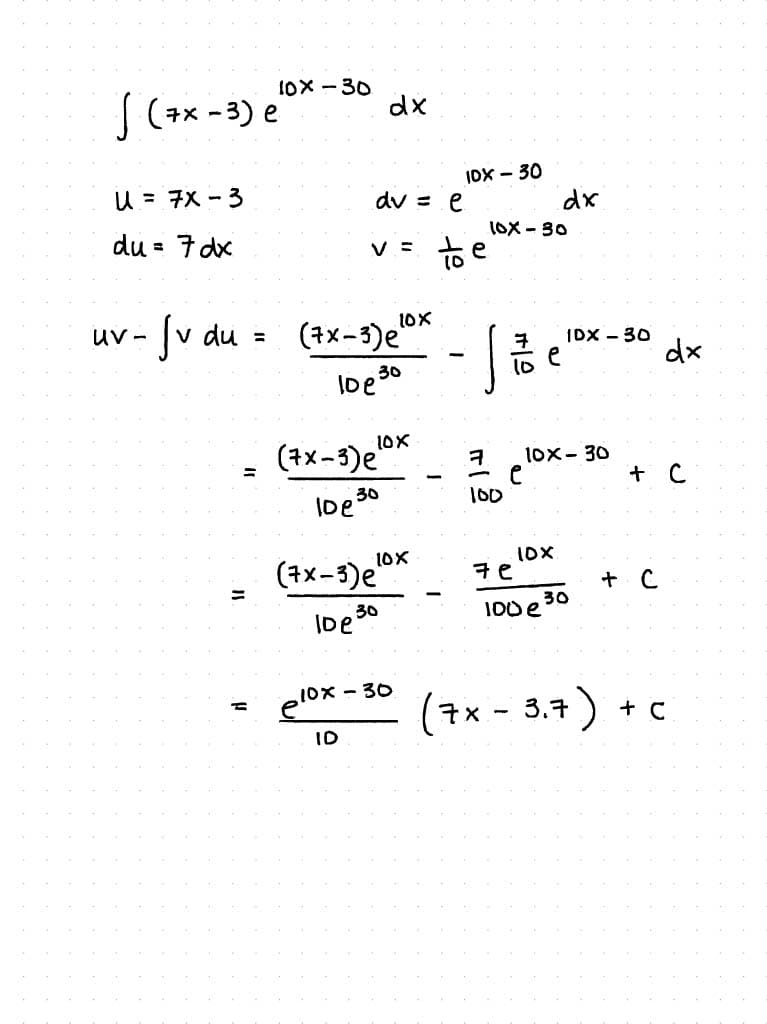 ∫ (7x - 3) e^{10x - 30} dx
u = 7x - 3    dv = e^{10x - 30} dx
du = 7 dx    v = \frac{1}{10} e^{10x - 30}
uv - ∫ v du = \frac{(7x - 3)e^{10x}}{10e^{30}} - ∫ \frac{7}{10} e^{10x - 30} dx
= \frac{(7x - 3)e^{10x}}{10e^{30}} - \frac{7}{100} e^{10x - 30} + C
= \frac{(7x - 3)e^{10x}}{10e^{30}} - \frac{7e^{10x}}{100e^{30}} + C
= \frac{e^{10x - 30}}{10} (7x - 3.7) + C